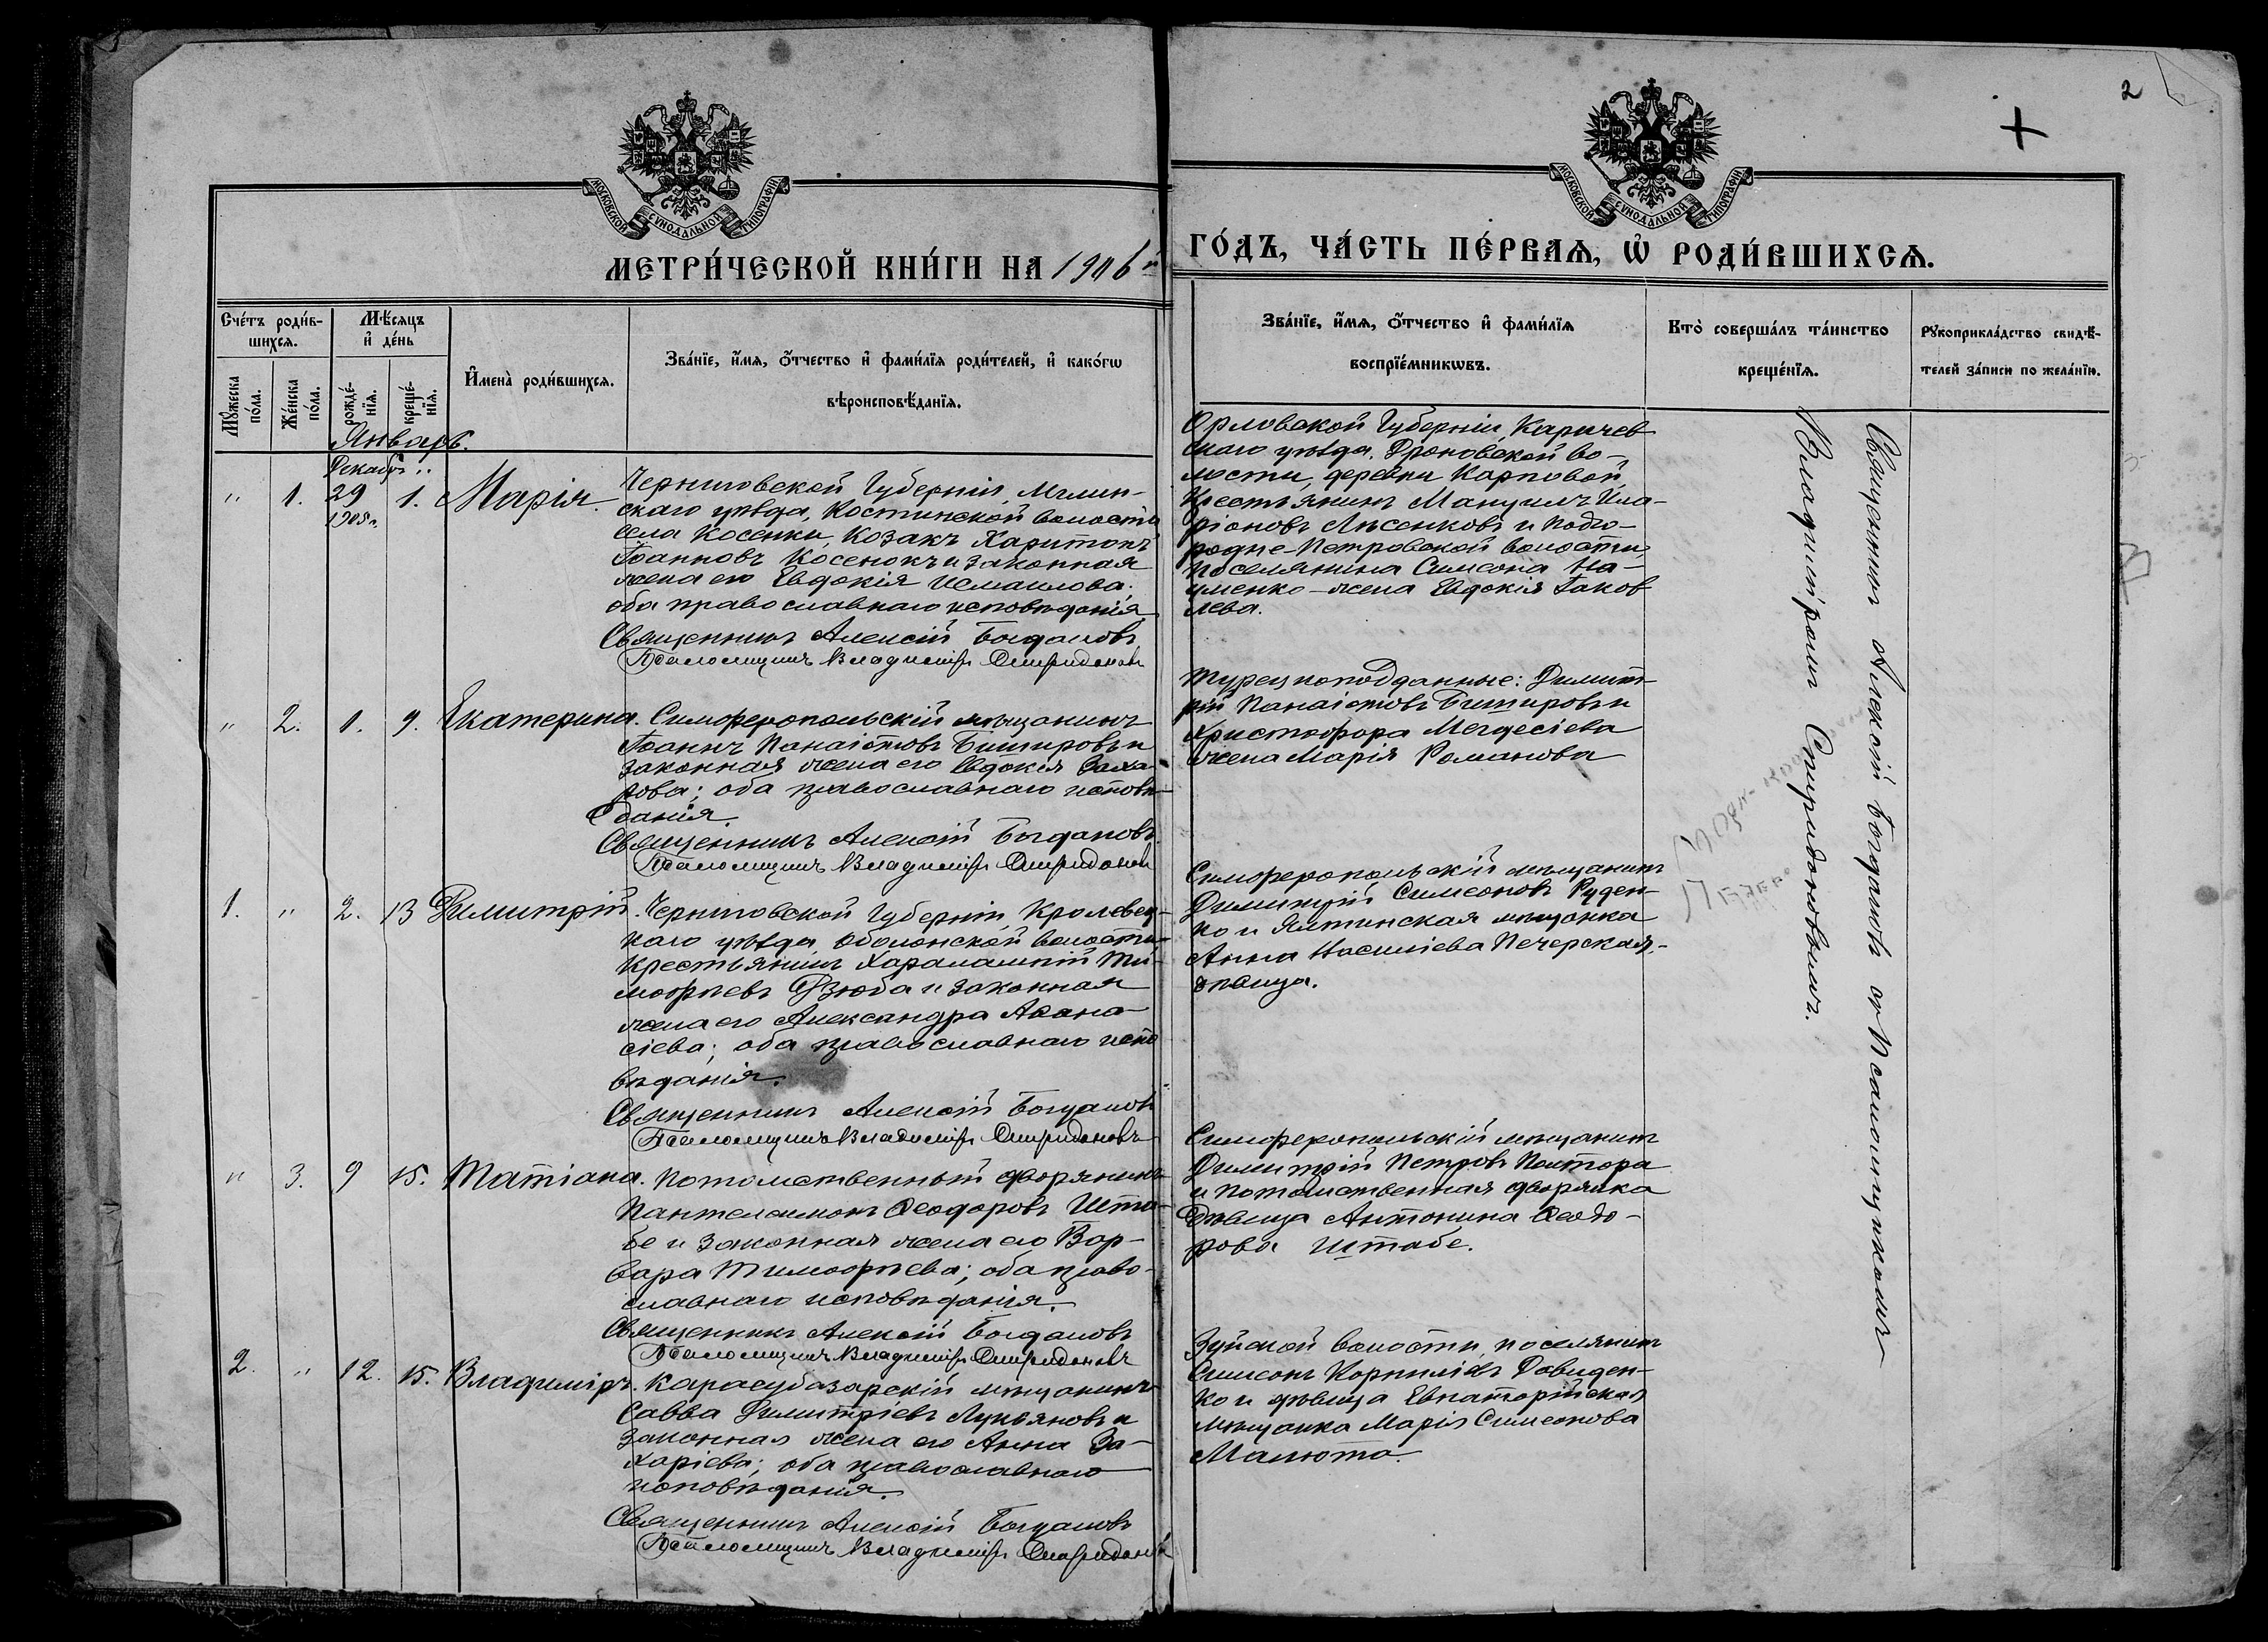 2
МОСКОВСКОЙ СѴНОДАЛЬНОЙ ТИПОГРАФІИ
МОСКОВСКОЙ СѴНОДАЛЬНОЙ ТИПОГРАФІИ
МЕТРИ́ЧЕСКОЙ КНИ́ГИ НА 1906й
ГО́ДЪ, ЧА́СТЬ ПЕ́РВАѦ, Ѡ҆ РОДИ́ВШИХСѦ.
Сче́тъ роди́в-
шихсѧ.
Мѣ́сѧцъ
и҆ де́нь
Мꙋ́жеска
по́ла.
Же́нска
по́ла.
рожде́-
нїѧ.
креще́-
нїѧ.
И҆мена̀ роди́вшихсѧ.
Зва́нїе, и҆́мѧ, ѻ҆́тчество и҆ фами́лїѧ роди́телей, и҆ како́гѡ
вѣроисповѣ́данїѧ.
Зва́нїе, и҆́мѧ, ѻ҆́тчество и҆ фами́лїѧ
воспрїе́мникѡвъ.
Кто̀ соверша́лъ та́инство
креще́нїѧ.
Рꙋкоприкла́дство свидѣ́-
телей за́писи по жела́нїю.
Январь.
Декабр
" 1. 29 1. Марія.
1905 г.
Черниговской Губерніи, Мглин-
скаго уѣзда, Костинской волости
села Косенки, Козакъ Харитонъ
Іоанновъ Косенокъ и законная
жена его Евдокія Исмаилова;
оба православнаго исповѣданія
Священникъ Алексій Богдановъ
Псаломщикъ Владиміръ Спиридоновъ
Орловской Губерніи, Карачев
скаго уѣзда, Дроновской во-
лости, деревни Карповой,
Крестьянинъ Мануилъ Ила-
ріоновъ Лѣсенковъ и Подго-
родне-Петровской волости,
поселянина Симеона На-
уменко - жена Евдокія Іаков
лева.
" 2. 1. 9. Екатерина.
Симферопольскій мѣщанинъ
Іоаннъ Панаіотовъ Бишировъ и
законная жена его Евдокія Заха-
рова; оба православнаго исповѣ-
данія.
Священникъ Алексій Богдановъ
Псаломщикъ Владиміръ Спиридоновъ
Турецкоподданные: Димит-
рій Панаіотовъ Бишировъ и
Христофора Мегдесіева
жена Марія Романова
1. " 2. 13 Димитрій.
Черниговской Губерніи, Кролевец-
каго уѣзда, Оболонской волости,
Крестьянинъ Харалампій Ти-
мофѣевъ Дзюба и законная
жена его Александра Аѳана-
сіева; оба православнаго испо
вѣданія.
Священникъ Алексій Богдановъ
Псаломщикъ Владиміръ Спиридоновъ
Симферопольскій мѣщанинъ
Димитрій Симеоновъ Руден-
ко и Ялтинская мѣщанка
Анна Васильева Печерская,
дѣвица.
" 3. 9 15. Татіана.
Потомственный дворянинъ
Пантелеимонъ Ѳеодоровъ Шта-
бе и законная жена его Вар-
вара Тимофѣева; оба право-
славнаго исповѣданія.
Священникъ Алексій Богдановъ
Псаломщикъ Владиміръ Спиридоновъ
Симферопольскій мѣщанинъ
Димитрій Петровъ Полтора
и потомственная дворянка
дѣвица Антонина Ѳеодо-
рова Штабе.
2. " 12. 15. Владиміръ.
Карасубазарскій мѣщанинъ
Савва Димитріевъ Лукьяновъ и
законная жена его Анна За-
харіева; оба православнаго
исповѣданія.
Священникъ Алексій Богдановъ
Псаломщикъ Владиміръ Спиридоновъ
Зуйской волости, поселянинъ
Симеонъ Корниліевъ Давиден-
ко и дѣвица Евпаторійская
мѣщанка Марія Симеонова
Малюта.
Священникъ Алексій Богдановъ съ Псаломщикомъ
Владиміромъ Спиридоновымъ.